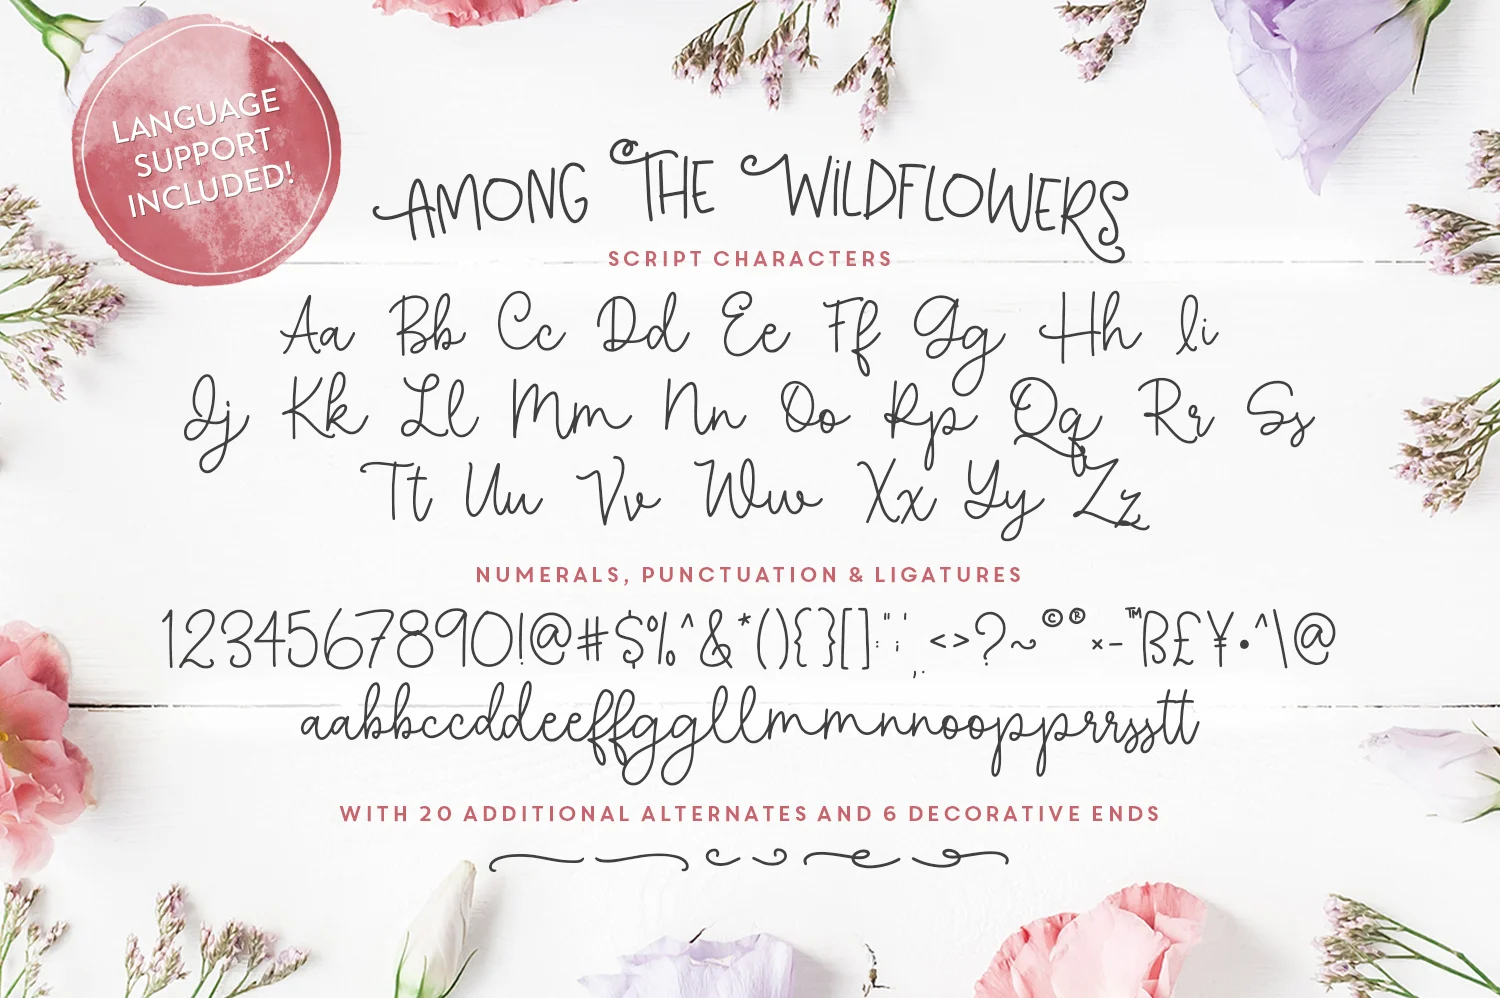 LANGUAGE
SUPPORT
INCLUDED!
AMONG THE WILDFLOWERS
SCRIPT CHARACTERS
Aa Bb Cc Dd Ee Ff Gg Hh Ii
Jj Kk Ll Mm Nn Oo Pp Qq Rr Ss
Tt Uu Vv Ww Xx Yy Zz
NUMERALS, PUNCTUATION & LIGATURES
1234567890!@#$%^&*(){}[]:";',.<>?~©®×-™ß£¥•^\@
aabbccddeeffggllmmnnoopprrsstt
WITH 20 ADDITIONAL ALTERNATES AND 6 DECORATIVE ENDS